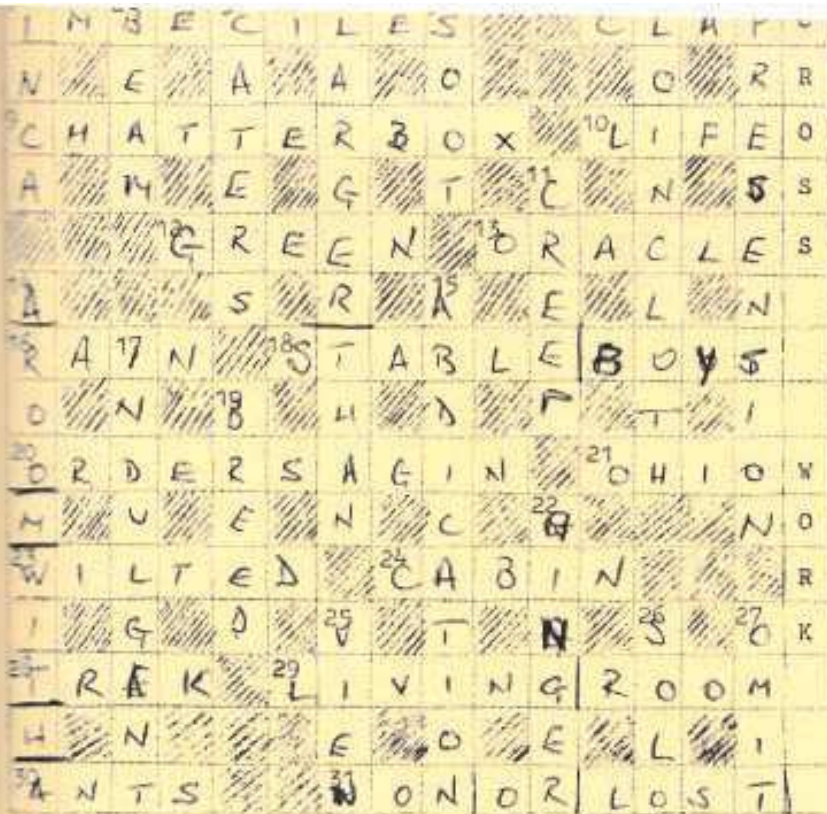 I M B E C I L E S C L A P C
N E A A O O R R
9 C H A T T E R B O X 10 L I F E O
A M E G T 11 C N S S
12 G R E E N 13 O R A C L E S
A S R 15 A E L N
16 R A 17 I N 18 S T A B L E B O Y S
O N 19 B H D P T I
20 O R D E R S A G I N 21 O H I O W
N U E N C 22 G N O
W I L T E D 24 C A B I N R
I G D 25 V T N 26 S 27 O K
T R E K 29 L I V I N G R O O M
H N E O E L I
30 A N T S 31 W O N O R L O S T